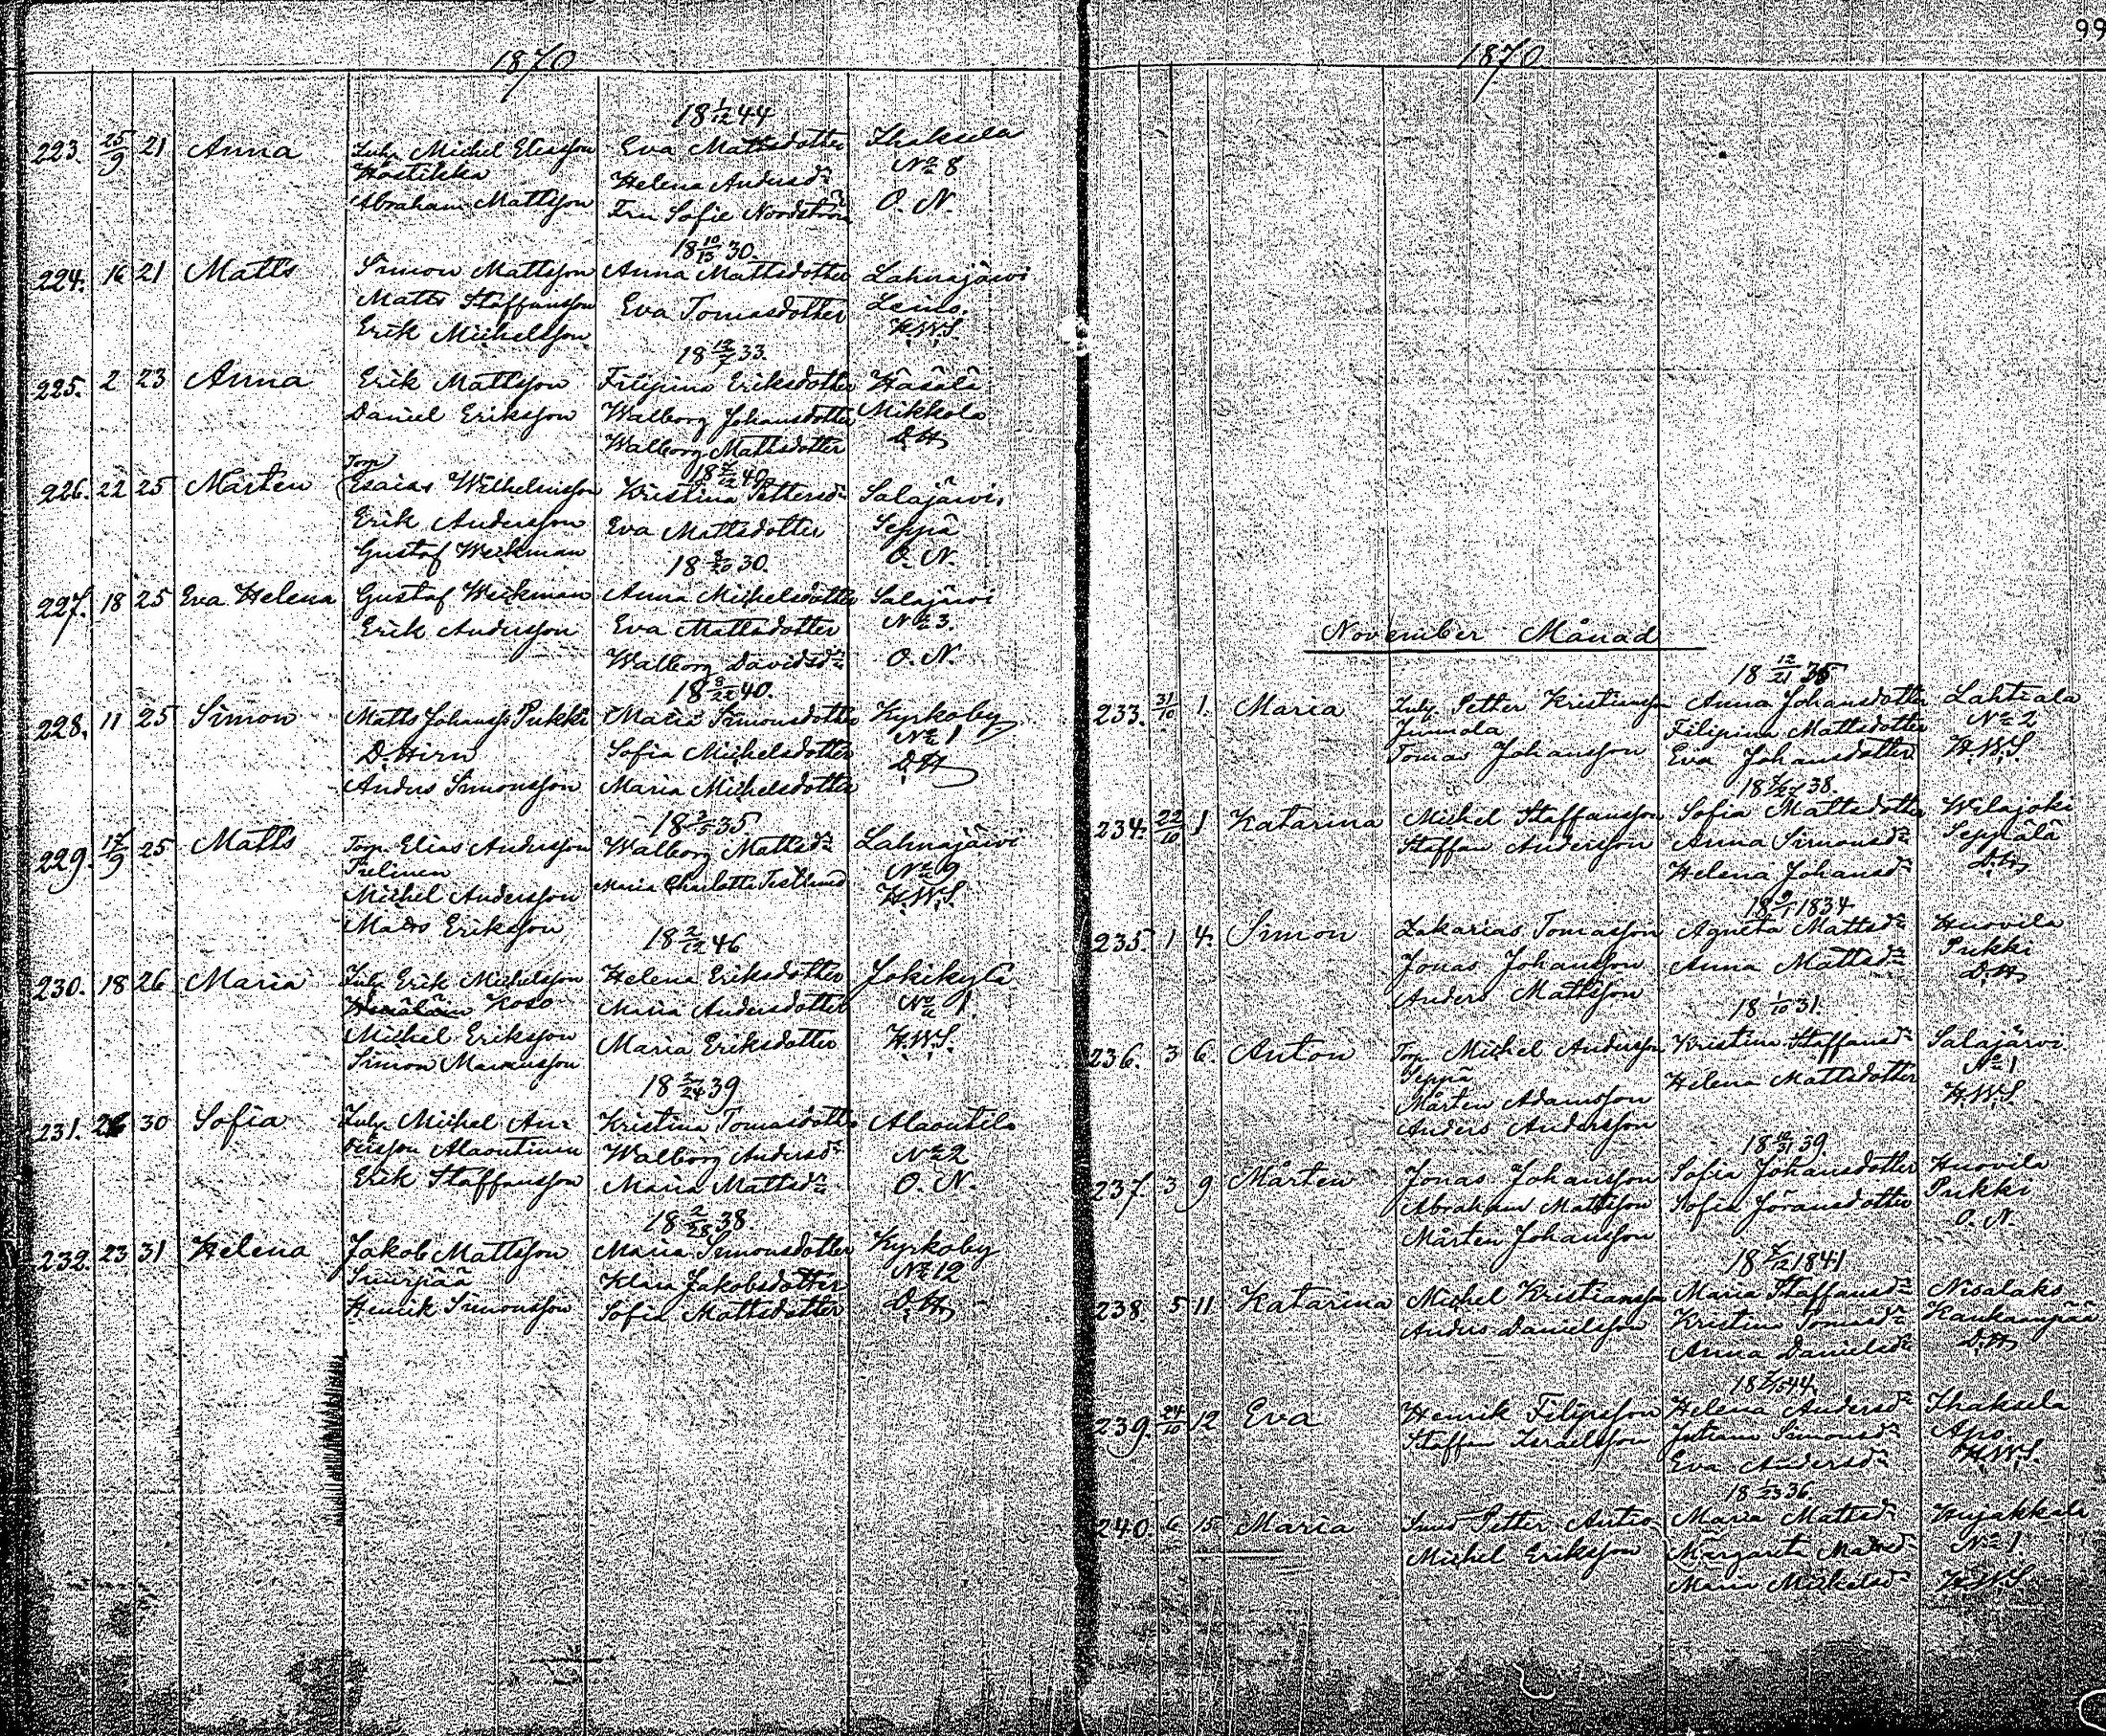 99
1870
18 1/12 44
223. 25/9 21 Anna Inhy. Michel Eliasson Eva Mattsdotter Ihaksela
Hostikka Helena Andersd:r No 8
Abraham Mattsson Fru Sofie Nordström O. N.
18 10/13 30.
224. 16 21 Matts Simon Mattsson Anna Mattsdotter Lahnajärvi
Matts Staffansson Eva Tomasdotter Leino.
Erik Michelsson H.W.S.
18 12/7 33.
225. 2 23 Anna Erik Mattsson Filipina Eriksdotter Kasala
Daniel Eriksson Walborg Johansdotter Mikkola
Walborg Mattsdotter D.H
18 7/12 40
226. 22 25 Mårten Torp. Esaias Wilhelmsson Kristina Pettersd:r Salajärvi
Erik Andersson Eva Mattsdotter Seppä
Gustaf Weckman O. N.
18 8/20 30.
227. 18 25 Eva Helena Gustaf Weckman Anna Michelsdotter Salajärvi
Erik Andersson Eva Mattsdotter No 3.
Walborg Davidsd:r O. N.
18 8/22 40.
228. 11 25 Simon Matts Johanss. Pukki Maria Simonsdotter Kyrkoby
D. Hirn Sofia Michelsdotter No 1
Anders Simonsson Maria Michelsdotter D.H
18 2/5 35
229. 17/9 25 Matts Torp. Elias Andersson Walborg Mattsd:r Lahnajärvi
No 9
Michel Andersson Maria Charlotta H.W.S.
Mats Eriksson
18 2/12 46
230. 18 26 Maria Inhy. Erik Michelsson Helena Eriksdotter Jokikylä
Koso Maria Andersdotter No 1
Michel Eriksson Maria Eriksdotter H.W.S.
Simon
18 2/24 39
231. 26 30 Sofia Inhy. Michel An- Kristina Tomasdotter Alaoutila
dersson Alaoutinen Walborg Andersd:r No 2
Erik Staffansson Maria Mattsd:r O. N.
18 2/28 38
232. 23 31 Helena Jakob Mattsson Maria Simonsdotter Kyrkoby
Suurpää Klara Jakobsdotter No 12
Henrik Simonsson Sofia Mattsdotter D.H
1870.
November Månad
18 12/21 35
233. 31/10 1. Maria Inhy. Petter Kristiansson Anna Johansdotter Lahtiala
Junnola Filipina Mattsdotter No 2
Tomas Johansson Eva Johansdotter H.W.S.
18 7/27 38.
234. 22/10 1 Katarina Michel Staffansson Sofia Mattsdotter Wilajoki
Staffan Andersson Anna Simonsd:r Seppälä
Helena Johansd:r D.H
18 9/1 1834
235. 1 4. Simon Zakarias Tomasson Agneta Mattsd:r Huovila
Jonas Johansson Anna Mattsd:r Pukki
Anders Mattsson D.H
18 1/10 31.
236. 3 6. Anton Torp. Michel Andersson Kristina Staffansd:r Salajärvi
Seppä Helena Mattsdotter No 1
Mårten Adamsson H.W.S.
Anders Andersson
18 12/31 39.
237. 3 9 Mårten Jonas Johansson Sofia Johansdotter Huovila
Abraham Mattsson Sofia Jöransdotter Pukki
Mårten Johansson O. N.
18 7/12 1841
238 5 11 Katarina Michel Kristiansson Maria Staffansd:r Nisalaks
Anders Danielsson Kristina Tomasd:r Kankaanpää
Anna Danielsd:r D.H
18 7/15 44.
239. 24/10 12 Eva Henrik Filipsson Helena Andersd:r Ihaksela
Staffan Israelsson Simonsd:r Apo
Eva Andersd:r H.W.S.
18 1/23 36
240. 6 15 Maria Smed Petter Maria Mattsd:r Hujakkala
Michel Eriksson Margareta No 1
Maria Mickelsd:r H.W.S